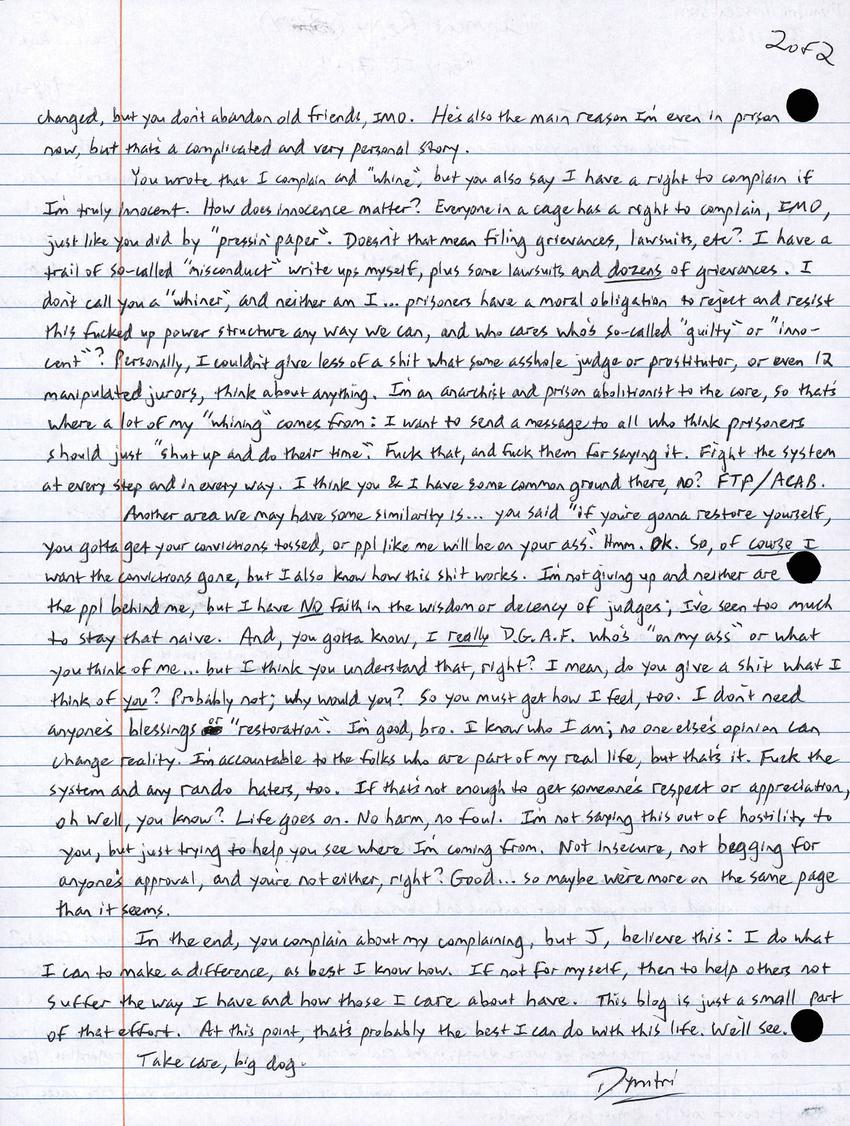 2 of 2
changed, but you don't abandon old friends, IMO. He's also the main reason I'm even in prison
now, but that's a complicated and very personal story.
You wrote that I complain and "whine", but you also say I have a right to complain if
I'm truly innocent. How does innocence matter? Everyone in a cage has a right to complain, IMO,
just like you did by "pressin' paper". Doesn't that mean filing grievances, lawsuits, etc? I have a
trail of so-called "misconduct" write ups myself, plus some lawsuits and dozens of grievances. I
don't call you a "whiner", and neither am I... prisoners have a moral obligation to reject and resist
this fucked up power structure any way we can, and who cares who's so-called "guilty" or "inno-
cent"? Personally, I couldn't give less of a shit what some asshole judge or prostitutor, or even 12
manipulated jurors, think about anything. I'm an anarchist and prison abolitionist to the core, so that's
where a lot of my "whining" comes from: I want to send a message to all who think prisoners
should just "shut up and do their time". Fuck that, and fuck them for saying it. Fight the system
at every step and in every way. I think you & I have some common ground there, no? FTP/ACAB.
Another area we may have some similarity is... you said "if you're gonna restore yourself,
you gotta get your convictions tossed, or ppl like me will be on your ass." Hmm. Ok. So, of course I
want the convictions gone, but I also know how this shit works. I'm not giving up and neither are
the ppl behind me, but I have NO faith in the wisdom or decency of judges; I've seen too much
to stay that naive. And, you gotta know, I really D.G.A.F. who's "on my ass" or what
you think of me... but I think you understand that, right? I mean, do you give a shit what I
think of you? Probably not; why would you? So you must get how I feel, too. I don't need
anyone's blessings or "restoration". I'm good, bro. I know who I am; no one else's opinion can
change reality. I'm accountable to the folks who are part of my real life, but that's it. Fuck the
system and any rando haters, too. If that's not enough to get someone's respect or appreciation,
oh well, you know? Life goes on. No harm, no foul. I'm not saying this out of hostility to
you, but just trying to help you see where I'm coming from. Not insecure, not begging for
anyone's approval, and you're not either, right? Good... so maybe we're more on the same page
than it seems.
In the end, you complain about my complaining, but J, believe this: I do what
I can to make a difference, as best I know how. If not for myself, then to help others not
suffer the way I have and how those I care about have. This blog is just a small part
of that effort. At this point, that's probably the best I can do with this life. We'll see.
Take care, big dog.
Dymitri